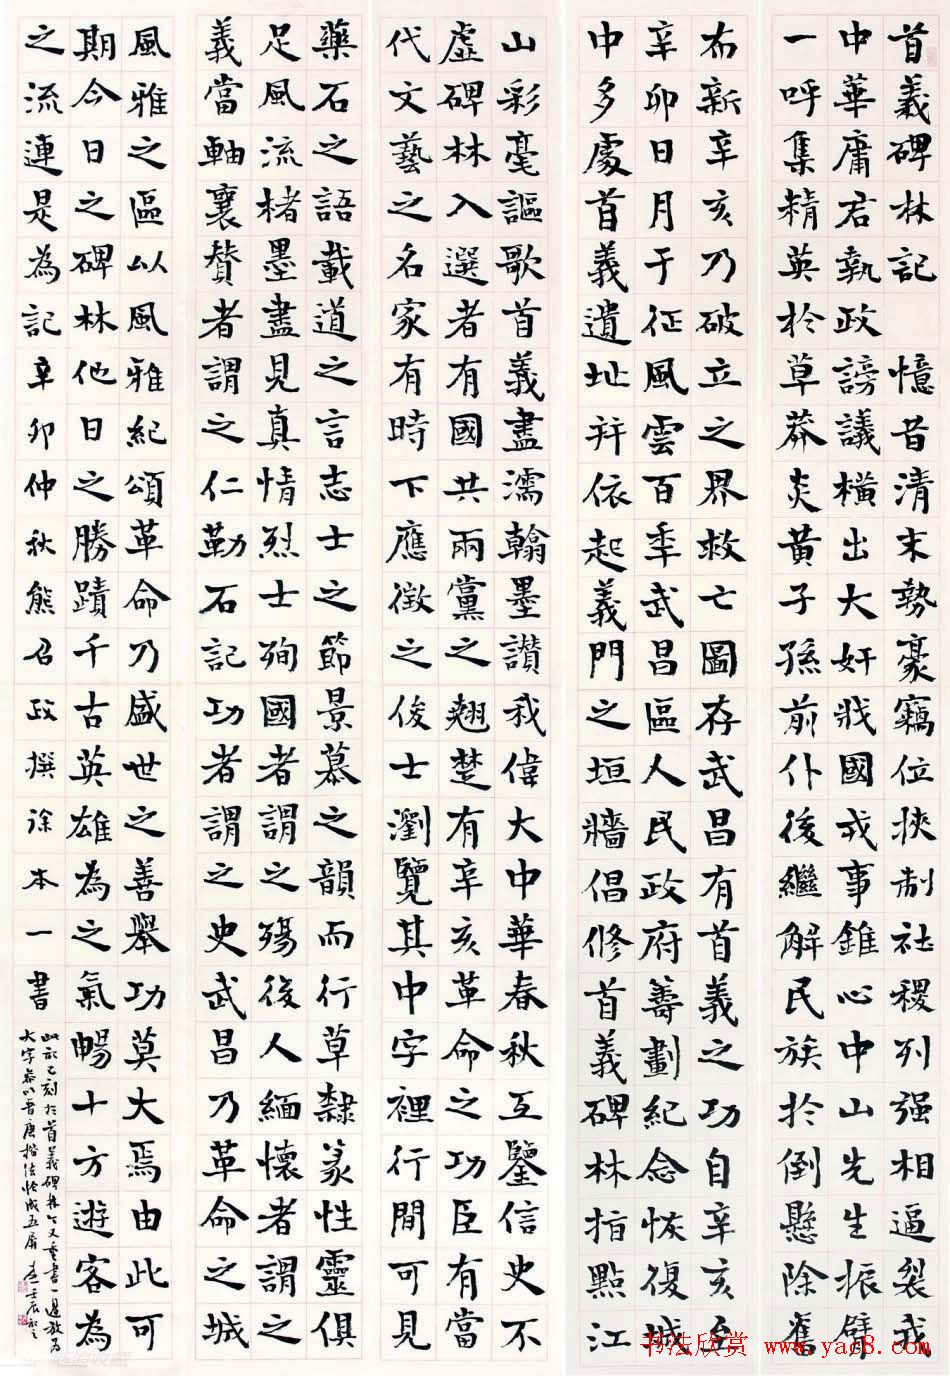 首義碑林記 憶昔清末勢豪竊位挾制社稷列强相逼裂我
中華庸君執政謗議橫出大奸戕國成事錐心中山先生振臂
一呼集精英於草莽炎黃子孫前仆後繼解民族於倒懸除舊
布新辛亥乃破立之界救亡圖存武昌有首義之功自辛亥至
辛卯日月于征風雲百季武昌區人民政府籌劃紀念恢復城
中多處首義遺址并依起義門之垣牆倡修首義碑林指點江
山彩毫謳歌首義盡濡翰墨讚我偉大中華春秋互鑒信史不
虛碑林入選者有國共兩黨之翹楚有辛亥革命之功臣有當
代文藝之名家有時下應徵之俊士瀏覽其中字裡行間可見
藥石之語載道之言志士之節景慕之韻而行草隸篆性靈俱
足風流楮墨盡見真情烈士殉國者謂之殤後人緬懷者謂之
義當軸襄贊者謂之仁勒石記功者謂之史武昌乃革命之城
風雅之區以風雅紀頌革命乃盛世之善舉功莫大焉由此可
期今日之碑林他日之勝蹟千古英雄為之氣暢十方遊客為
之流連是為記辛卯仲秋熊召政撰徐本一書
此記已刻於首義碑林今又重書一過放為
大字參以晉唐楷法恰成五屏 壬辰
书法欣赏 www.yac8.com